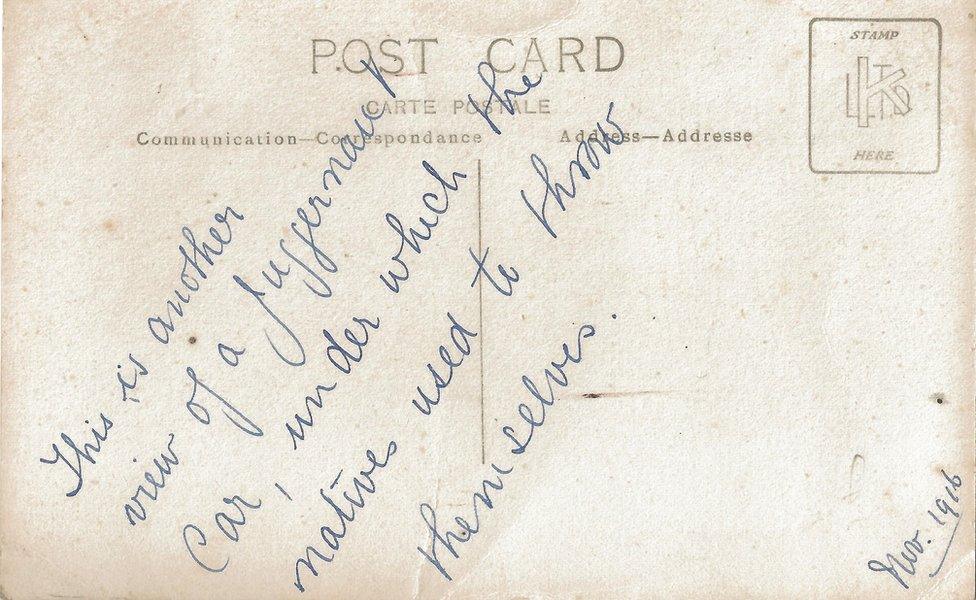 POST CARD
CARTE POSTALE
Communication—Correspondance
Address—Addresse
STAMP
HERE
This is another
view of a juggernaut
Car, under which the
natives used to throw
themselves.
Nov. 1916